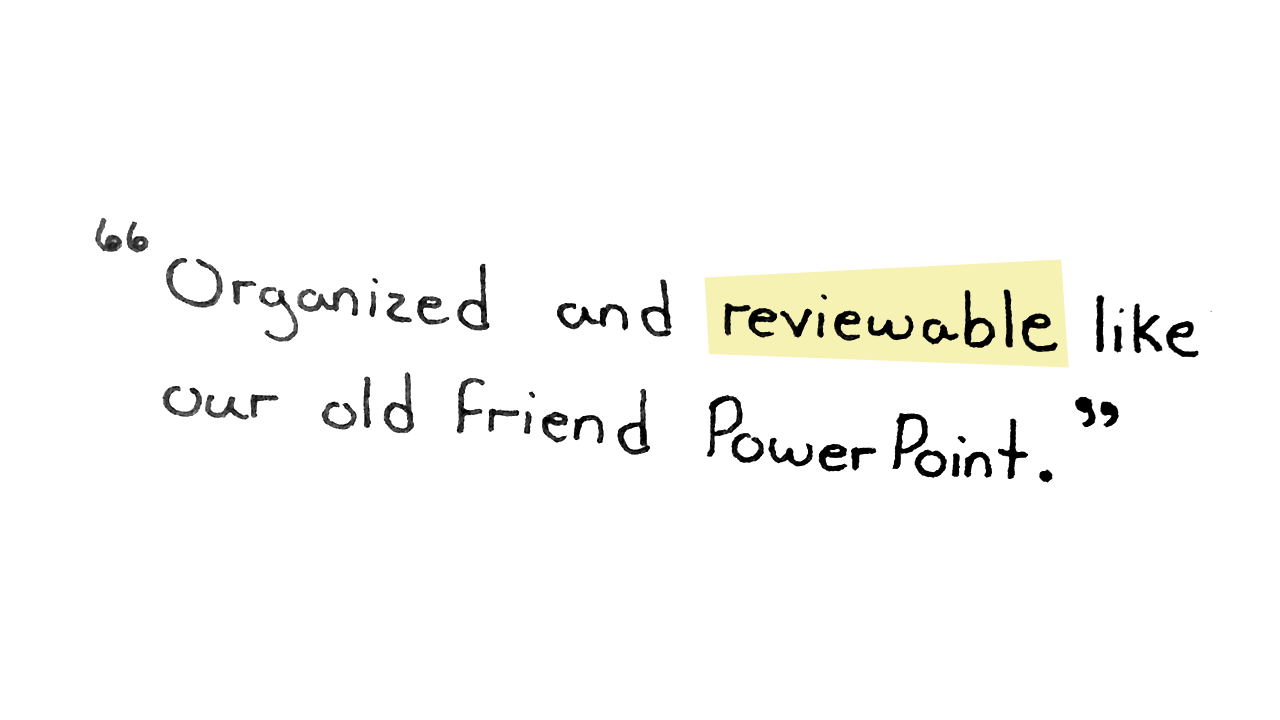 “Organized and reviewable like
our old friend PowerPoint.”